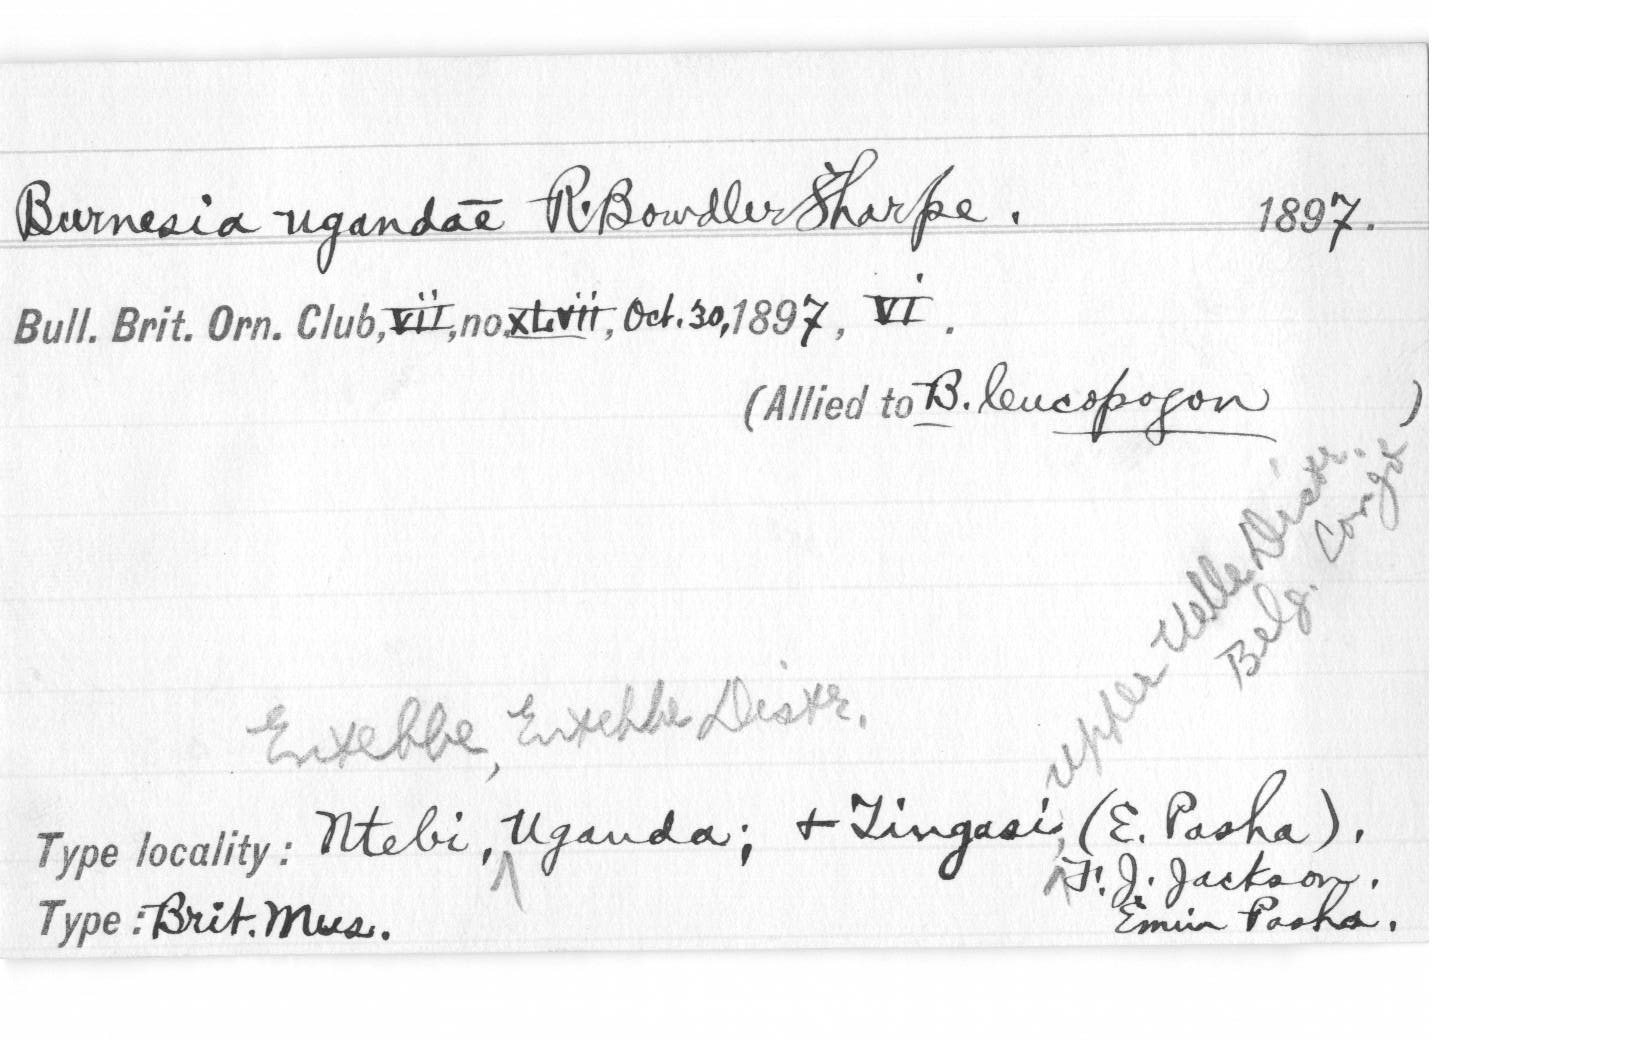 Burnesia ugandae R. Bowdler Sharpe. 1897.
Bull. Brit. Orn. Club, VII, no. XLVII, Oct. 30, 1897, VI.
(Allied to B. leucopogon)
upper Uelle Distr.
Belg. Congo
Entebbe, Entebbe Distr.
Type locality: Ntebi, Uganda; + Tingasi, (E. Pasha).
F. J. Jackson.
Type: Brit. Mus. Emin Pasha.